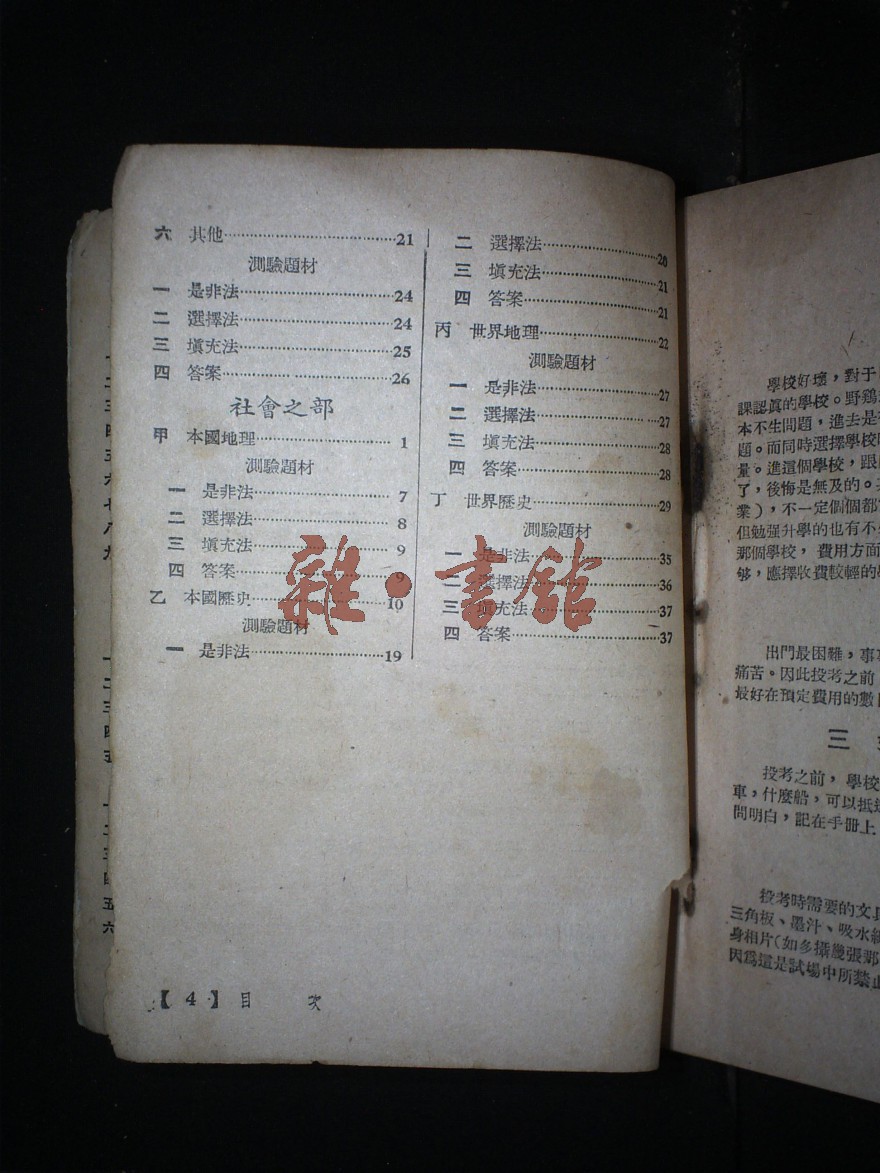 六 其他……21
測驗題材
一 是非法……24
二 選擇法……24
三 填充法……25
四 答案……26
社會之部
甲 本國地理……1
測驗題材
一 是非法……7
二 選擇法……8
三 填充法……9
四 答案……9
乙 本國歷史……10
測驗題材
一 是非法……19
二 選擇法……20
三 填充法……21
四 答案……21
丙 世界地理……22
測驗題材
一 是非法……27
二 選擇法……27
三 填充法……28
四 答案……28
丁 世界歷史……29
測驗題材
一 是非法……35
二 選擇法……36
三 填充法……37
四 答案……37
【4】目 次
雜·書館
學校好壞，對于
課認眞的學校。野鷄
本不生問題，進去是
題。而同時選擇學校
量。進這個學校，跟
了，後悔是無及的。
業），不一定個個都
但勉强升學的也有不
那個學校，費用方面
够，應擇收費較輕的
出門最困難，事
痛苦。因此投考之前，
最好在預定費用的數
三
投考之前，學校
車，什麼船，可以抵達
問明白，記在手册上
投考時需要的文具
三角板、墨汁、吸水紙
身相片（如多攝幾張那
因爲這是試場中所禁止